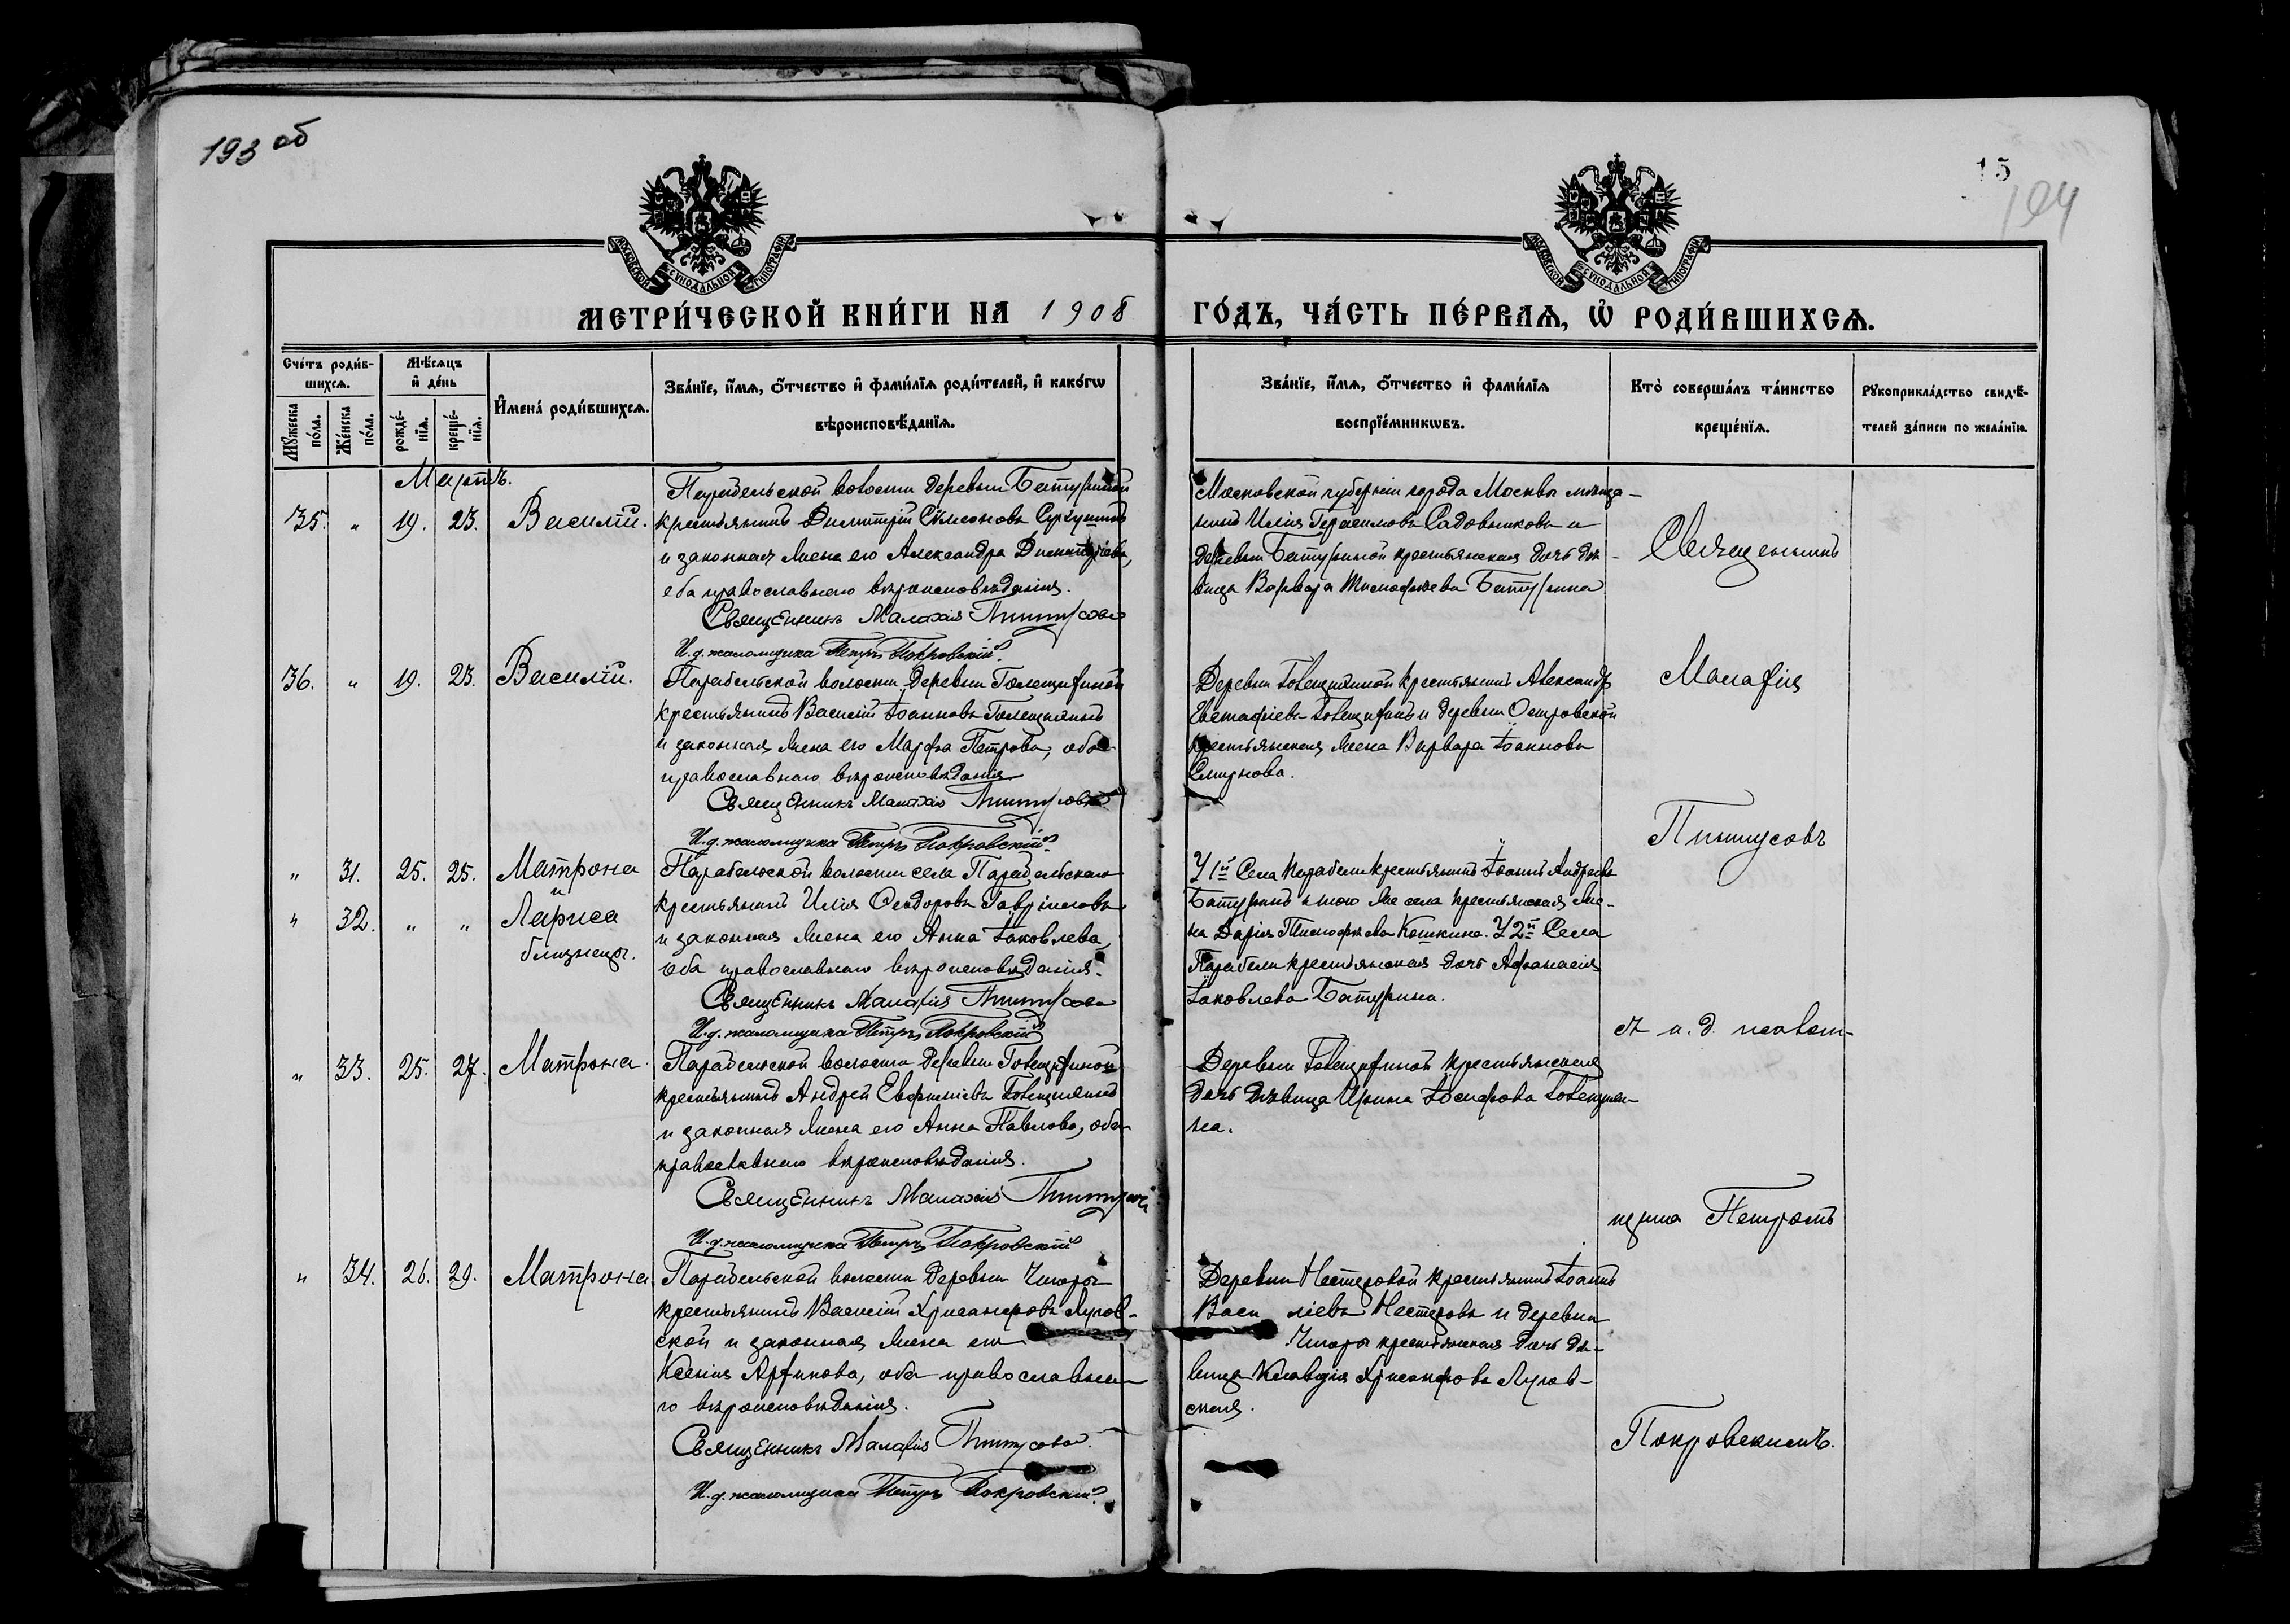 193 об
15
194
МОСКОВСКОЙ СѴНОДАЛЬНОЙ ТИПОГРАФІИ
МОСКОВСКОЙ СѴНОДАЛЬНОЙ ТИПОГРАФІИ
МЕТРИ́ЧЕСКОЙ КНИ́ГИ НА 1908
ГО́ДЪ, ЧА́СТЬ ПЕ́РВАѦ, Ѡ҆ РОДИ́ВШИХСѦ.
Сче́тъ роди́в-
шихсѧ.
Мꙋ́жеска по́ла.
Же́нска по́ла.
Мѣ́сѧцъ
и҆ де́нь
рожде́-
нїѧ.
креще́-
нїѧ.
И҆мена̀ роди́вшихсѧ.
Зва́нїе, и҆́мѧ, ѻ҆́тчество и҆ фами́лїѧ роди́телей, и҆ како́гѡ
вѣроисповѣ́данїѧ.
Зва́нїе, и҆́мѧ, ѻ҆́тчество и҆ фами́лїѧ
воспрїе́мникѡвъ.
Кто̀ соверша́лъ та́инство
креще́нїѧ.
Рꙋкоприкла́дство свидѣ́-
телей за́писи по жела́нїю.
Мартъ.
35. " 19. 23. Василій.
Парабельской волости деревни Батуриной
крестьянинъ Димитрій Сѵмеоновъ
и законная жена его Александра Димитріева,
оба православнаго вѣроисповѣданія.
Священникъ Малахія Питтусовъ
И.д. псаломщика Петръ Покровскій.
Московской губерніи города Москвы мѣща-
нинъ Илія Герасимовъ Садовниковъ и
деревни Батуриной крестьянская дочь дѣ-
вица Варвара Тимофѣева Батурина
36. " 19. 23. Василій.
Парабельской волости деревни Голещихиной
крестьянинъ Василій Іоанновъ Голещихинъ
и законная жена его Марфа Петрова, оба
православнаго вѣроисповѣданія
Священникъ Малахія Питтусовъ
И.д. псаломщика Петръ Покровскій.
Деревни Голещихиной крестьянинъ Александръ
Евстафіевъ Голещихинъ и деревни Островской
крестьянская жена Варвара Іоаннова
Смирнова.
" 31. 25. 25. Матрона
и
" 32. " " Лариса
близнецы.
Парабельской волости села Парабельскаго
крестьянинъ Илія Ѳеодоровъ Гавриловъ
и законная жена его Анна Іаковлева,
оба православнаго вѣроисповѣданія.
Священникъ Малахія Питтусовъ
И.д. псаломщика Петръ Покровскій
У 1й Села Парабели крестьянинъ Іоаннъ Андреевъ
Батуринъ и того же села крестьянская же-
на Дарія Тимофѣева Кошкина. У 2й Села
Парабели крестьянская дочь Афанасія
Іаковлева Батурина.
" 33. 25. 27. Матрона.
Парабельской волости деревни Голещихиной
крестьянинъ Андрей Евфиміевъ Голещихинъ
и законная жена его Анна Павлова, оба
православнаго вѣроисповѣданія.
Священникъ Малахія Питтусовъ
И.д. псаломщика Петръ Покровскій
Деревни Голещихиной крестьянская
дочь дѣвица Ирина Іосифова Голещихи-
на.
" 34. 26. 29. Матрона.
Парабельской волости деревни Чигары
крестьянинъ Василій Хрисанфовъ Лугов-
ской и законная жена его
Ксенія Архипова, оба православна-
го вѣроисповѣданія.
Священникъ Малахія Питтусовъ.
И.д. псаломщика Петръ Покровскій.
Деревни Нестеровой крестьянинъ Іоаннъ
Васи ліевъ Нестеровъ и деревни
Чигары крестьянская дочь дѣ-
вица Клавдія Хрисанфова Лугов-
ская.
Священникъ
Малахія
Питтусовъ
съ и. д. псалом-
щика Петромъ
Покровскимъ.